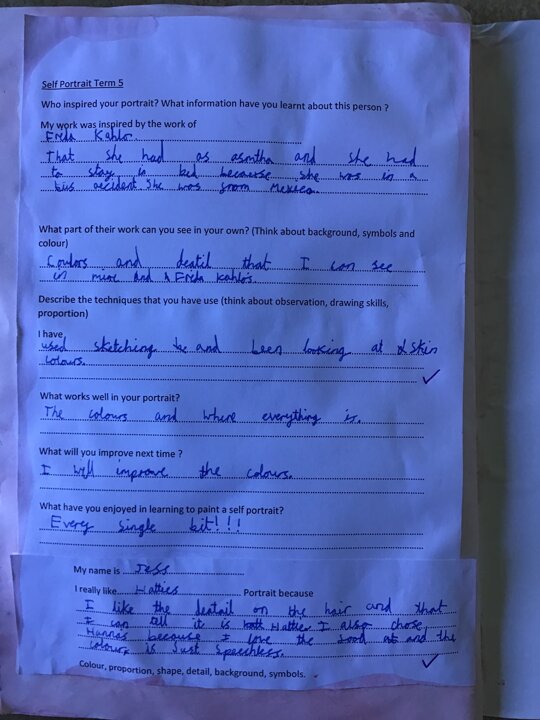 Self Portrait Term 5
Who inspired your portrait? What information have you learnt about this person ?
My work was inspired by the work of
Frida Kahlo.
That she had as asmtha and she had
to stay in bed because she was in a
bus accident. She was from Mexico.
What part of their work can you see in your own? (Think about background, symbols and
colour)
Coulors and deatil that I can see
in mine and Freda Kahlo's.
Describe the techniques that you have use (think about observation, drawing skills,
proportion)
I have
used sketching and been looking at skin
colours.
What works well in your portrait?
The colours and where everything is.
What will you improve next time ?
I will improve the colours.
What have you enjoyed in learning to paint a self portrait?
Every single bit!!!
My name is Jess
I really like Hatties Portrait because
I like the deatail on the hair and that
I can tell it is both Hattie. I also chose
Hannas because I love the and the
colour is Just Speechless.
Colour, proportion, shape, detail, background, symbols.